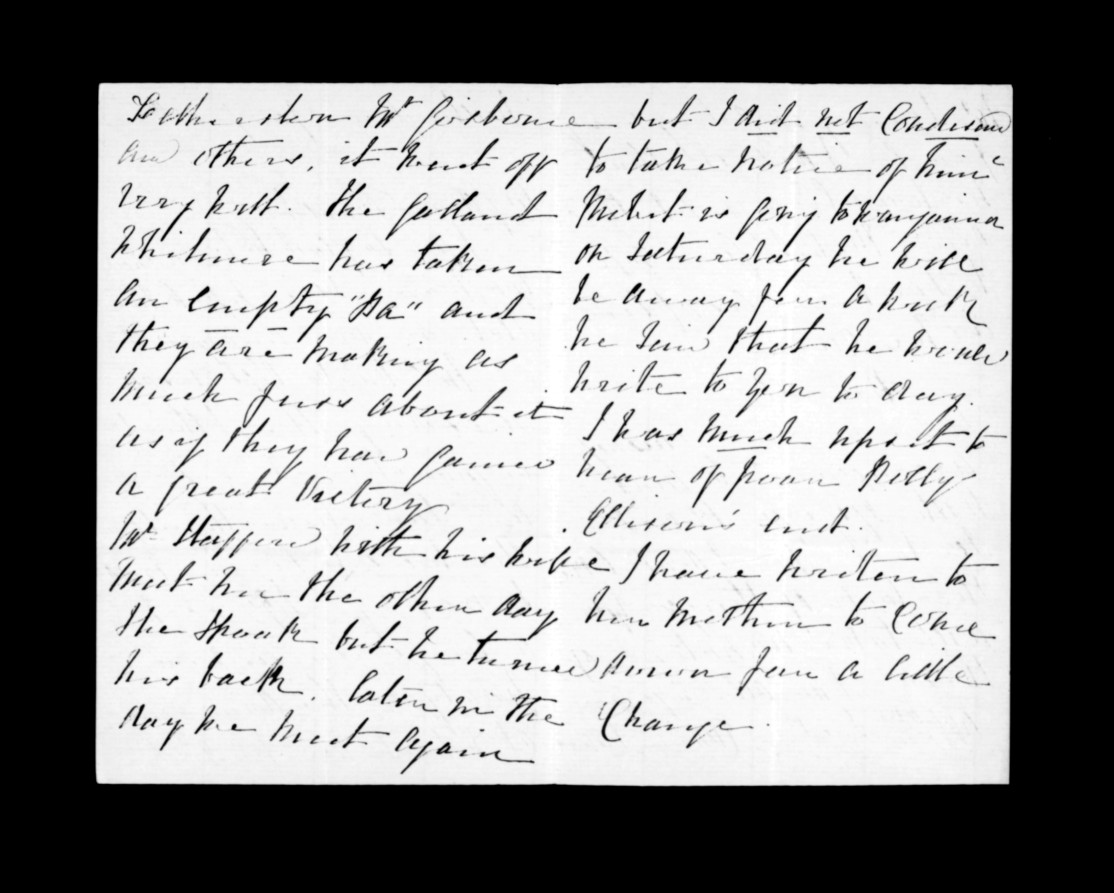 Featherston Mr Gisborne
and others, it went off
very well. The gallant
Whitmore has taken
an empty "Pa" and
they are making as
much fuss about it
as if they had gained
a great Victory
Mr Stafford with his wife
met me the other day
She spoke but he turned
his back. Later in the
day we met again
but I did not Condescend
to take notice of him
is going to Wanganui
on Saturday he will
be away for a week
he said that he would
write to you to day.
I was much upset to
hear of poor Polly
Ellison's end.
I have written to
her Mother to Come
down for a little
Change.